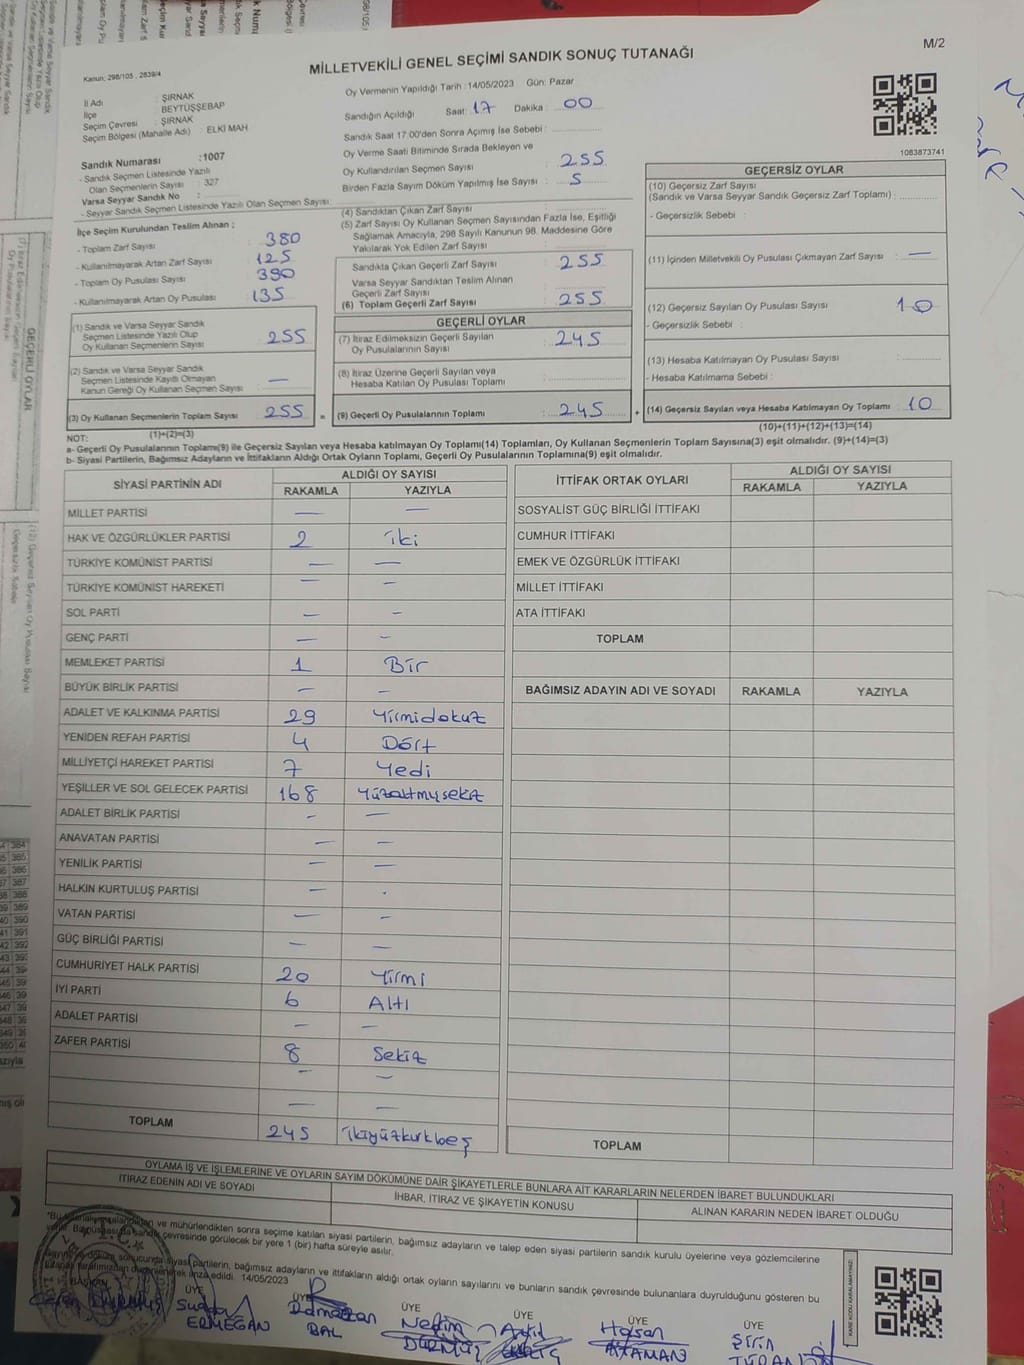 MİLLETVEKİLİ GENEL SEÇİMİ SANDIK SONUÇ TUTANAĞI
M/2
Kanun: 298/105 , 2839/4
İl Adı : ŞIRNAK
İlçe : BEYTÜŞŞEBAP
Seçim Çevresi : ŞIRNAK
Seçim Bölgesi (Mahalle Adı) : ELKİ MAH
Sandık Numarası :1007
- Sandık Seçmen Listesinde Yazılı
Olan Seçmenlerin Sayısı : 327
Varsa Seyyar Sandık No :
- Seyyar Sandık Seçmen Listesinde Yazılı Olan Seçmen Sayısı :
İlçe Seçim Kurulundan Teslim Alınan ;
- Toplam Zarf Sayısı : 380
- Kullanılmayarak Artan Zarf Sayısı : 125
- Toplam Oy Pusulası Sayısı : 390
- Kullanılmayarak Artan Oy Pusulası : 135
(1) Sandık ve Varsa Seyyar Sandık
Seçmen Listesinde Yazılı Olup
Oy Kullanan Seçmenlerin Sayısı : 255
(2) Sandık ve Varsa Seyyar Sandık
Seçmen Listesinde Kayıtlı Olmayan
Kanun Gereği Oy Kullanan Seçmen Sayısı : —
(3) Oy Kullanan Seçmenlerin Toplam Sayısı : 255
(1)+(2)=(3)
Oy Vermenin Yapıldığı Tarih :14/05/2023 Gün: Pazar
Sandığın Açıldığı Saat: 17 Dakika : 00
Sandık Saat 17:00'den Sonra Açımış İse Sebebi :
Oy Verme Saati Bitiminde Sırada Bekleyen ve
Oy Kullandırılan Seçmen Sayısı : 255
Birden Fazla Sayım Döküm Yapılmış İse Sayısı : 5
(4) Sandıktan Çıkan Zarf Sayısı :
(5) Zarf Sayısı Oy Kullanan Seçmen Sayısından Fazla İse, Eşitliği
Sağlamak Amacıyla, 298 Sayılı Kanunun 98. Maddesine Göre
Yakılarak Yok Edilen Zarf Sayısı :
Sandıkta Çıkan Geçerli Zarf Sayısı : 255
Varsa Seyyar Sandıktan Teslim Alınan
Geçerli Zarf Sayısı :
(6) Toplam Geçerli Zarf Sayısı : 255
GEÇERLİ OYLAR
(7) İtiraz Edilmeksizin Geçerli Sayılan
Oy Pusulalarının Sayısı : 245
(8) İtiraz Üzerine Geçerli Sayılan veya
Hesaba Katılan Oy Pusulası Toplamı :
= (9) Geçerli Oy Pusulalarının Toplamı : 245
1083873741
GEÇERSİZ OYLAR
(10) Geçersiz Zarf Sayısı
(Sandık ve Varsa Seyyar Sandık Geçersiz Zarf Toplamı) :
- Geçersizlik Sebebi :
(11) İçinden Milletvekili Oy Pusulası Çıkmayan Zarf Sayısı : —
(12) Geçersiz Sayılan Oy Pusulası Sayısı : 10
- Geçersizlik Sebebi :
(13) Hesaba Katılmayan Oy Pusulası Sayısı :
- Hesaba Katılmama Sebebi :
+ (14) Geçersiz Sayılan veya Hesaba Katılmayan Oy Toplamı : 10
(10)+(11)+(12)+(13)=(14)
NOT:
a- Geçerli Oy Pusulalarının Toplamı(9) ile Geçersiz Sayılan veya Hesaba katılmayan Oy Toplamı(14) Toplamları, Oy Kullanan Seçmenlerin Toplam Sayısına(3) eşit olmalıdır. (9)+(14)=(3)
b- Siyasi Partilerin, Bağımsız Adayların ve İttifakların Aldığı Ortak Oyların Toplamı, Geçerli Oy Pusulalarının Toplamına(9) eşit olmalıdır.
SİYASİ PARTİNİN ADI ALDIĞI OY SAYISI
RAKAMLA YAZIYLA
MİLLET PARTİSİ — —
HAK VE ÖZGÜRLÜKLER PARTİSİ 2 iki
TÜRKİYE KOMÜNİST PARTİSİ — —
TÜRKİYE KOMÜNİST HAREKETİ — —
SOL PARTİ — —
GENÇ PARTİ — —
MEMLEKET PARTİSİ 1 Bir
BÜYÜK BİRLİK PARTİSİ — —
ADALET VE KALKINMA PARTİSİ 29 Yirmidokuz
YENİDEN REFAH PARTİSİ 4 Dört
MİLLİYETÇİ HAREKET PARTİSİ 7 Yedi
YEŞİLLER VE SOL GELECEK PARTİSİ 168 Yüzaltmışsekiz
ADALET BİRLİK PARTİSİ — —
ANAVATAN PARTİSİ — —
YENİLİK PARTİSİ — —
HALKIN KURTULUŞ PARTİSİ — .
VATAN PARTİSİ — —
GÜÇ BİRLİĞİ PARTİSİ — —
CUMHURİYET HALK PARTİSİ 20 Yirmi
İYİ PARTİ 6 Altı
ADALET PARTİSİ — —
ZAFER PARTİSİ 8 Sekiz
— —
— —
TOPLAM 245 ikiyüzkırkbeş
İTTİFAK ORTAK OYLARI ALDIĞI OY SAYISI
RAKAMLA YAZIYLA
SOSYALİST GÜÇ BİRLİĞİ İTTİFAKI
CUMHUR İTTİFAKI
EMEK VE ÖZGÜRLÜK İTTİFAKI
MİLLET İTTİFAKI
ATA İTTİFAKI
TOPLAM
BAĞIMSIZ ADAYIN ADI VE SOYADI RAKAMLA YAZIYLA
TOPLAM
OYLAMA İŞ VE İŞLEMLERİNE VE OYLARIN SAYIM DÖKÜMÜNE DAİR ŞİKAYETLERLE BUNLARA AİT KARARLARIN NELERDEN İBARET BULUNDUKLARI
İTİRAZ EDENİN ADI VE SOYADI
İHBAR, İTİRAZ VE ŞİKAYETİN KONUSU
ALINAN KARARIN NEDEN İBARET OLDUĞU
ve mühürlendikten sonra seçime katılan siyasi partilerin, bağımsız adayların ve talep eden siyasi partilerin sandık kurulu üyelerine veya gözlemcilerine
çevresinde görülecek bir yere 1 (bir) hafta süreyle asılır.
siyasi partilerin, bağımsız adayların ve ittifakların aldığı ortak oyların sayılarını ve bunların sandık çevresinde bulunanlara duyrulduğunu gösteren bu
imza edildi. 14/05/2023
BAŞKAN ÜYE ÜYE ÜYE ÜYE ÜYE ÜYE
ERMEGAN
Ramazan BAL
Hasan ATAMAN
Şirin
KARE KODU KARALAMAYINIZ!
GEÇERLİ OYLAR